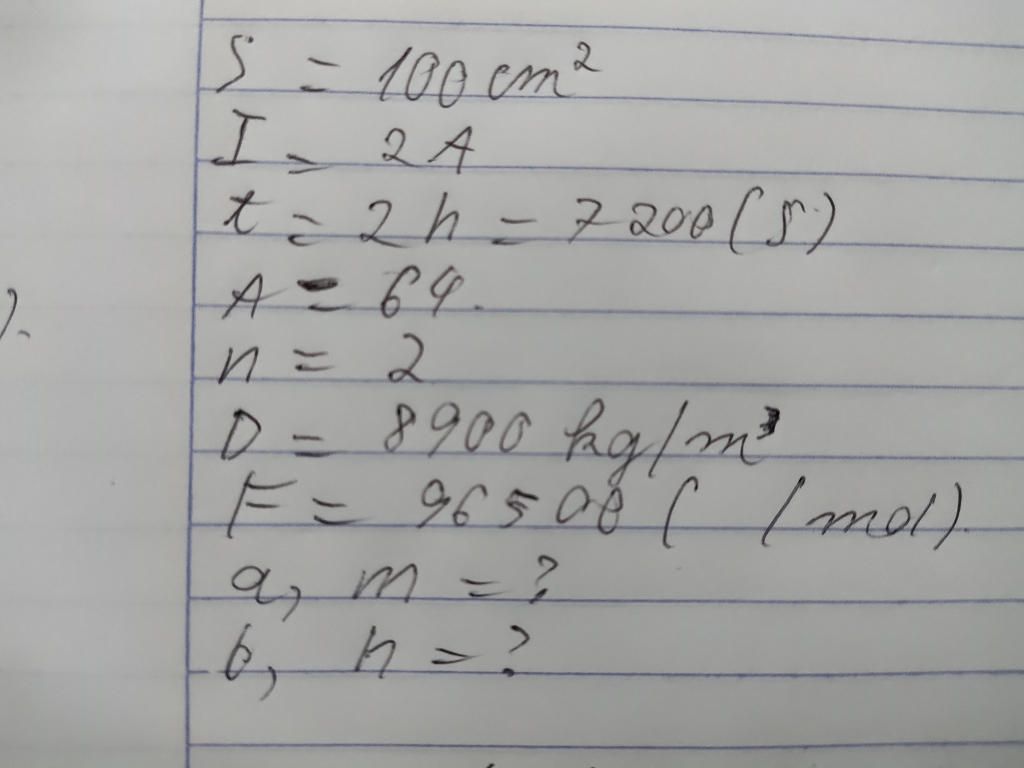 S = 100 cm²
I = 2 A
t = 2 h = 7200 (s)
A = 64.
n = 2
D = 8900 kg/m³
F = 96500 ( /mol).
a, m = ?
b, h = ?
).